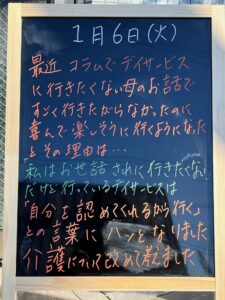 1月6日(火)
最近 コラムでデイサービス
に行きたくない母のお話で
すごく行きたがらなかったのに
喜んで楽しそうに行くようになった
とその理由は…
「私はお世話されに行きたくない
だけど行っているデイサービスは
「自分を認めてくれるから行く」
との言葉にハッとなりました
介護について改めて考えました